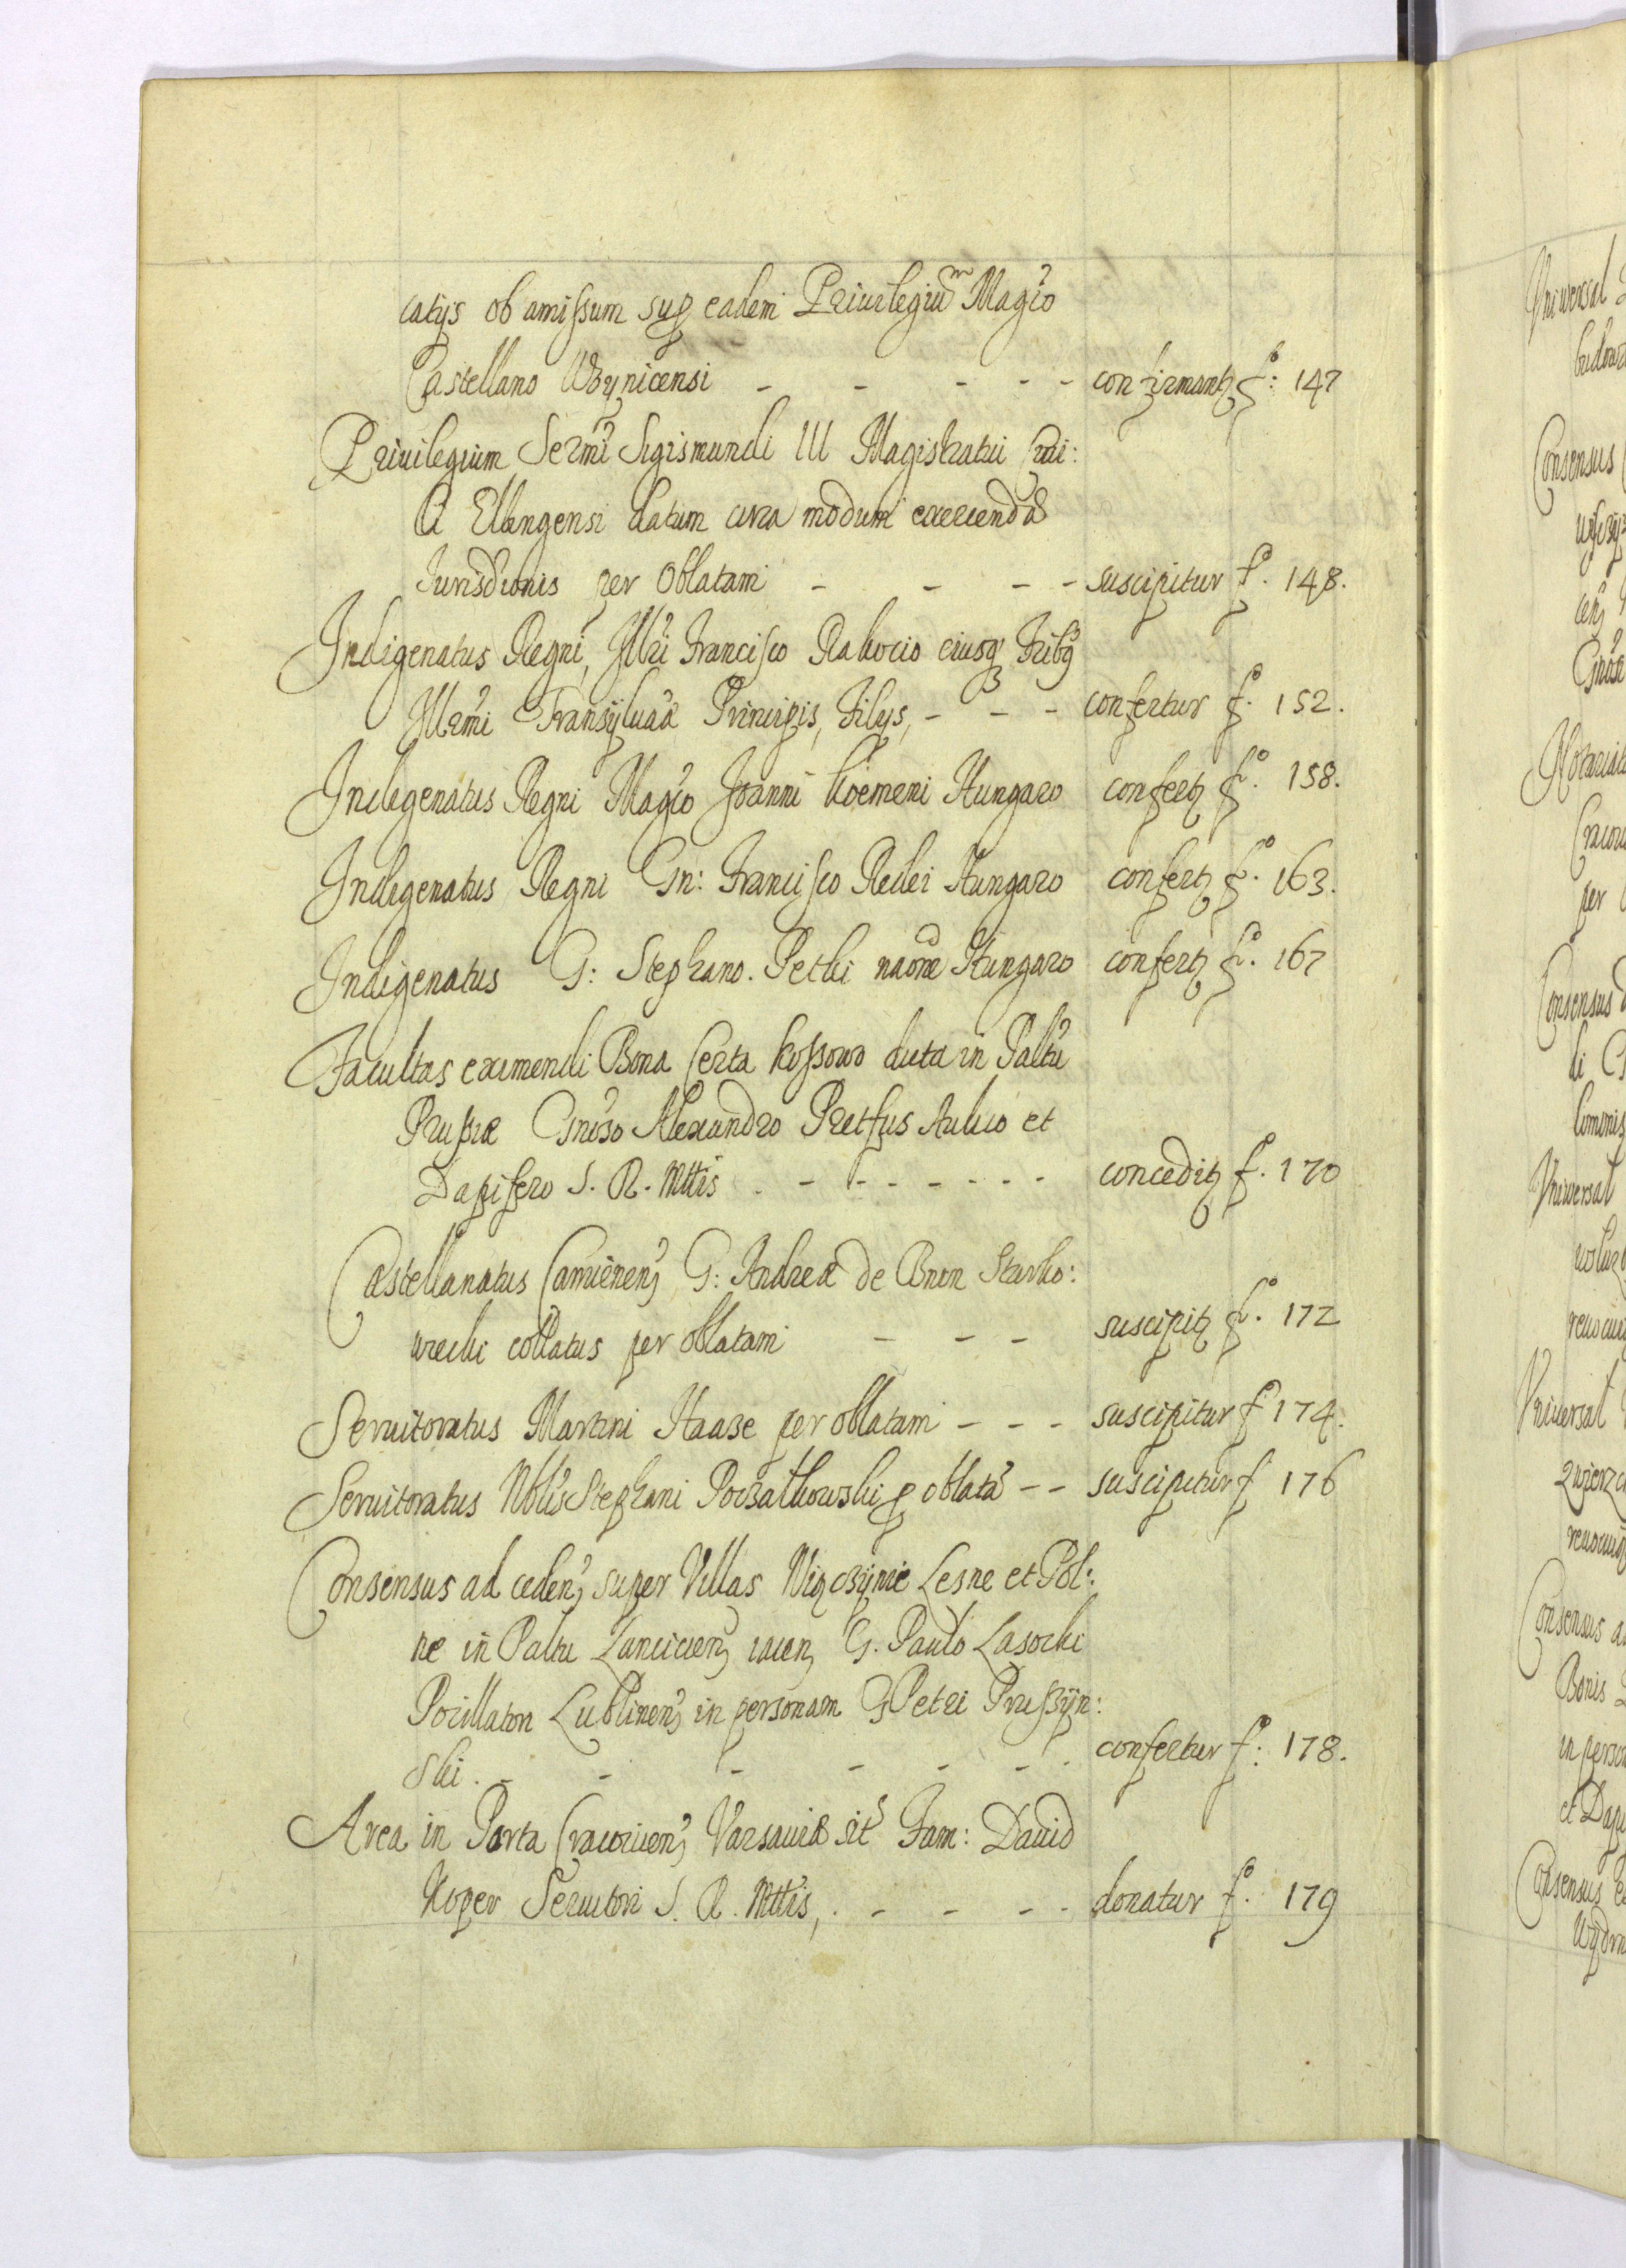 catijs ob amissum sup eadem Priuilegiũm Magco
Castellano Woynicensi - - - - - confirmantq fo: 147
Priuilegium Sermi Sigismundi III Magistratui Ciui:
li Elbingensi datum circa modum exercenda
Iurisdionis per Oblatam - - - - suscipitur fo. 148.
Indigenatus Regni, Illri Francisco Rakocio eiusq Fribq
Illrmi Transyluaa Principis, Filijs, - - - confertur fo. 152.
Indigenatus Regni Magco Joanni Koemeni Hungaro confertq fo. 158.
Indigenatus Regni Gn: Francisco Redei Hungaro confertq fo. 163.
Indigenatus G: Stephano. Pethi naone Hungaro confertq fo. 167
Facultas eximendi Bona Certa Kossowo dicta in Paltu
Prussiæ Gnoso Alexandro Pretfus Aulico et
Dapifero S. R. Mttis . - - - - - - - conceditq fo. 170
Castellanatus Camienen, G: Andreæ de Bnin Starko:
wiecki collatus per oblatam - - - suscipitq fo. 172
Seruitoratus Martini Haase per oblatam - - - suscipitur fo 174.
Seruitoratus Nblis Stephani Poczatkowski p oblatã - - suscipitur f 176
Consensus ad ceden, super Villas Wiczynie Lesne et Pol:
ne in Paltu Lancicien, iacen, G. Paulo Lasocki
Pocillatori Lublinen, in personam G Petri Prussyn:
ski . - - - - - - - confertur fo: 178.
Area in Porta Cracouien, Varsauiæ sit Fam: Dauid
Koper Seruitori S. R. Mttis, . - - - - donatur fo. 179